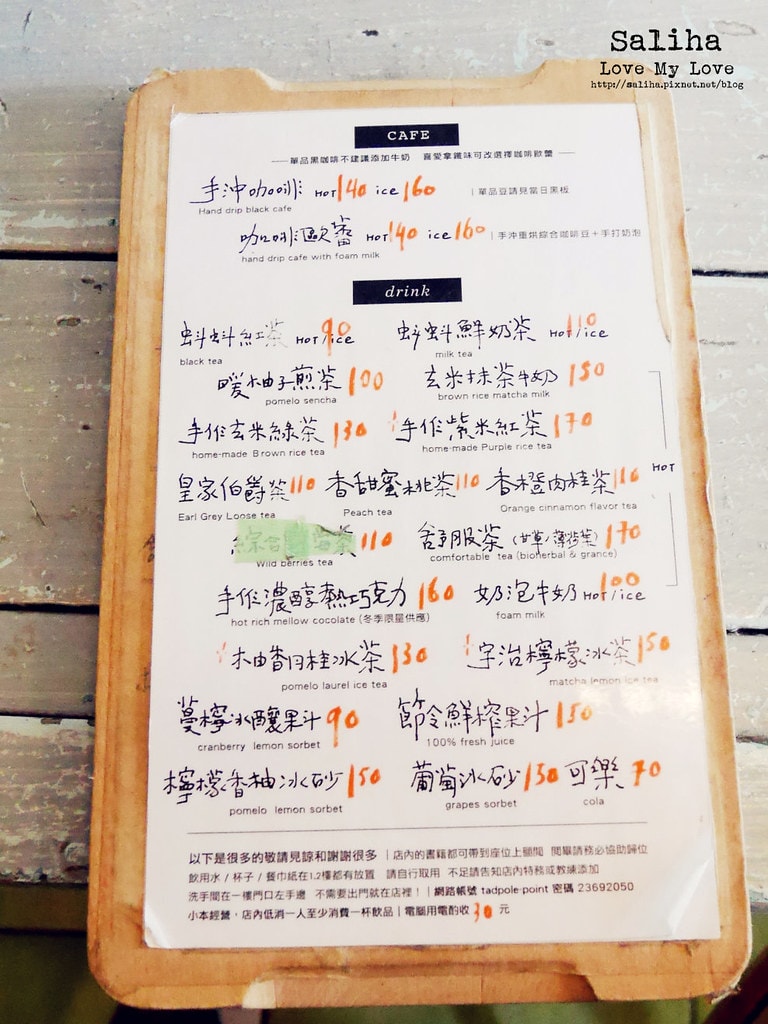 Saliha
Love My Love
http://saliha.pixnet.net/blog
CAFE
單品黑咖啡不建議添加牛奶 喜愛拿鐵味可改選擇咖啡歐蕾
手沖咖啡 HOT 140 ice 160 | 單品豆請見當日黑板
Hand drip black cafe
咖啡歐蕾 HOT 140 ice 160 | 手沖重烘綜合咖啡豆+手打奶泡
hand drip cafe with foam milk
drink
蚪蚪紅茶 HOT/ice 90 蚪蚪鮮奶茶 HOT/ice 110
black tea milk tea
暖柚子煎茶 100 玄米抹茶牛奶 150
pomelo sencha brown rice matcha milk
手作玄米綠茶 130 手作紫米紅茶 170
home-made Brown rice tea home-made Purple rice tea
皇家伯爵茶 110 香甜蜜桃茶 110 香橙肉桂茶 110 HOT
Earl Grey Loose tea Peach tea Orange cinnamon flavor tea
110 舒服茶 (甘草/薄荷葉) 170
Wild berries tea comfortable tea (bioherbal & grance)
手作濃醇熱巧克力 160 奶泡牛奶 HOT/ice 100
hot rich mellow cocolate (冬季限量供應) foam milk
柚香月桂冰茶 130 宇治檸檬冰茶 150
pomelo laurel ice tea matcha lemon ice tea
蔓檸冰釀果汁 90 節令鮮榨果汁 150
cranberry lemon sorbet 100% fresh juice
檸檬香柚冰砂 150 葡萄冰砂 150 可樂 70
pomelo lemon sorbet grapes sorbet cola
以下是很多的敬請見諒和謝謝很多 | 店內的書籍都可帶到座位上翻閱 閱畢請務必協助歸位
飲用水 / 杯子 / 餐巾紙在1.2樓都有放置 請自行取用 不足請告知店內特務或教練添加
洗手間在一樓門口左手邊 不需要出門就在店裡! | 網路帳號 tadpole-point 密碼 23692050
小本經營,店內低消一人至少消費一杯飲品 | 電腦用電酌收 30 元